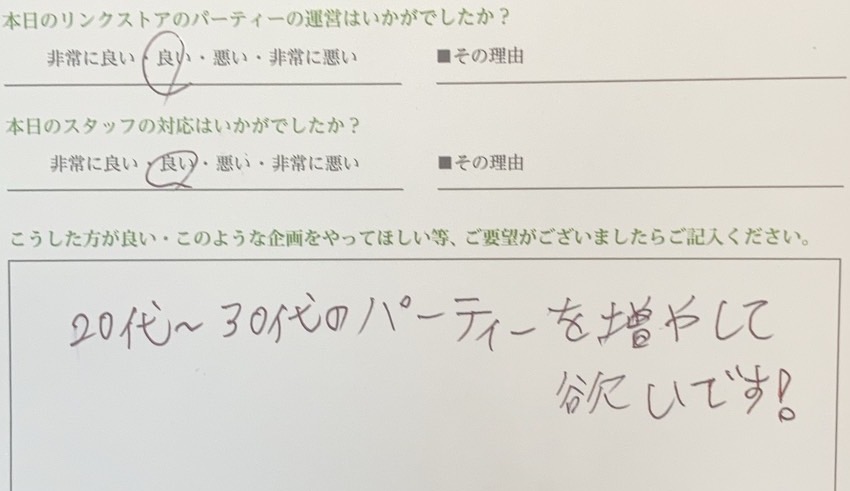 本日のリンクストアのパーティーの運営はいかがでしたか？
非常に良い・良い・悪い・非常に悪い ■その理由
本日のスタッフの対応はいかがでしたか？
非常に良い・良い・悪い・非常に悪い ■その理由
こうした方が良い・このような企画をやってほしい等、ご要望がございましたらご記入ください。
20代～30代のパーティーを増やして
欲しいです!